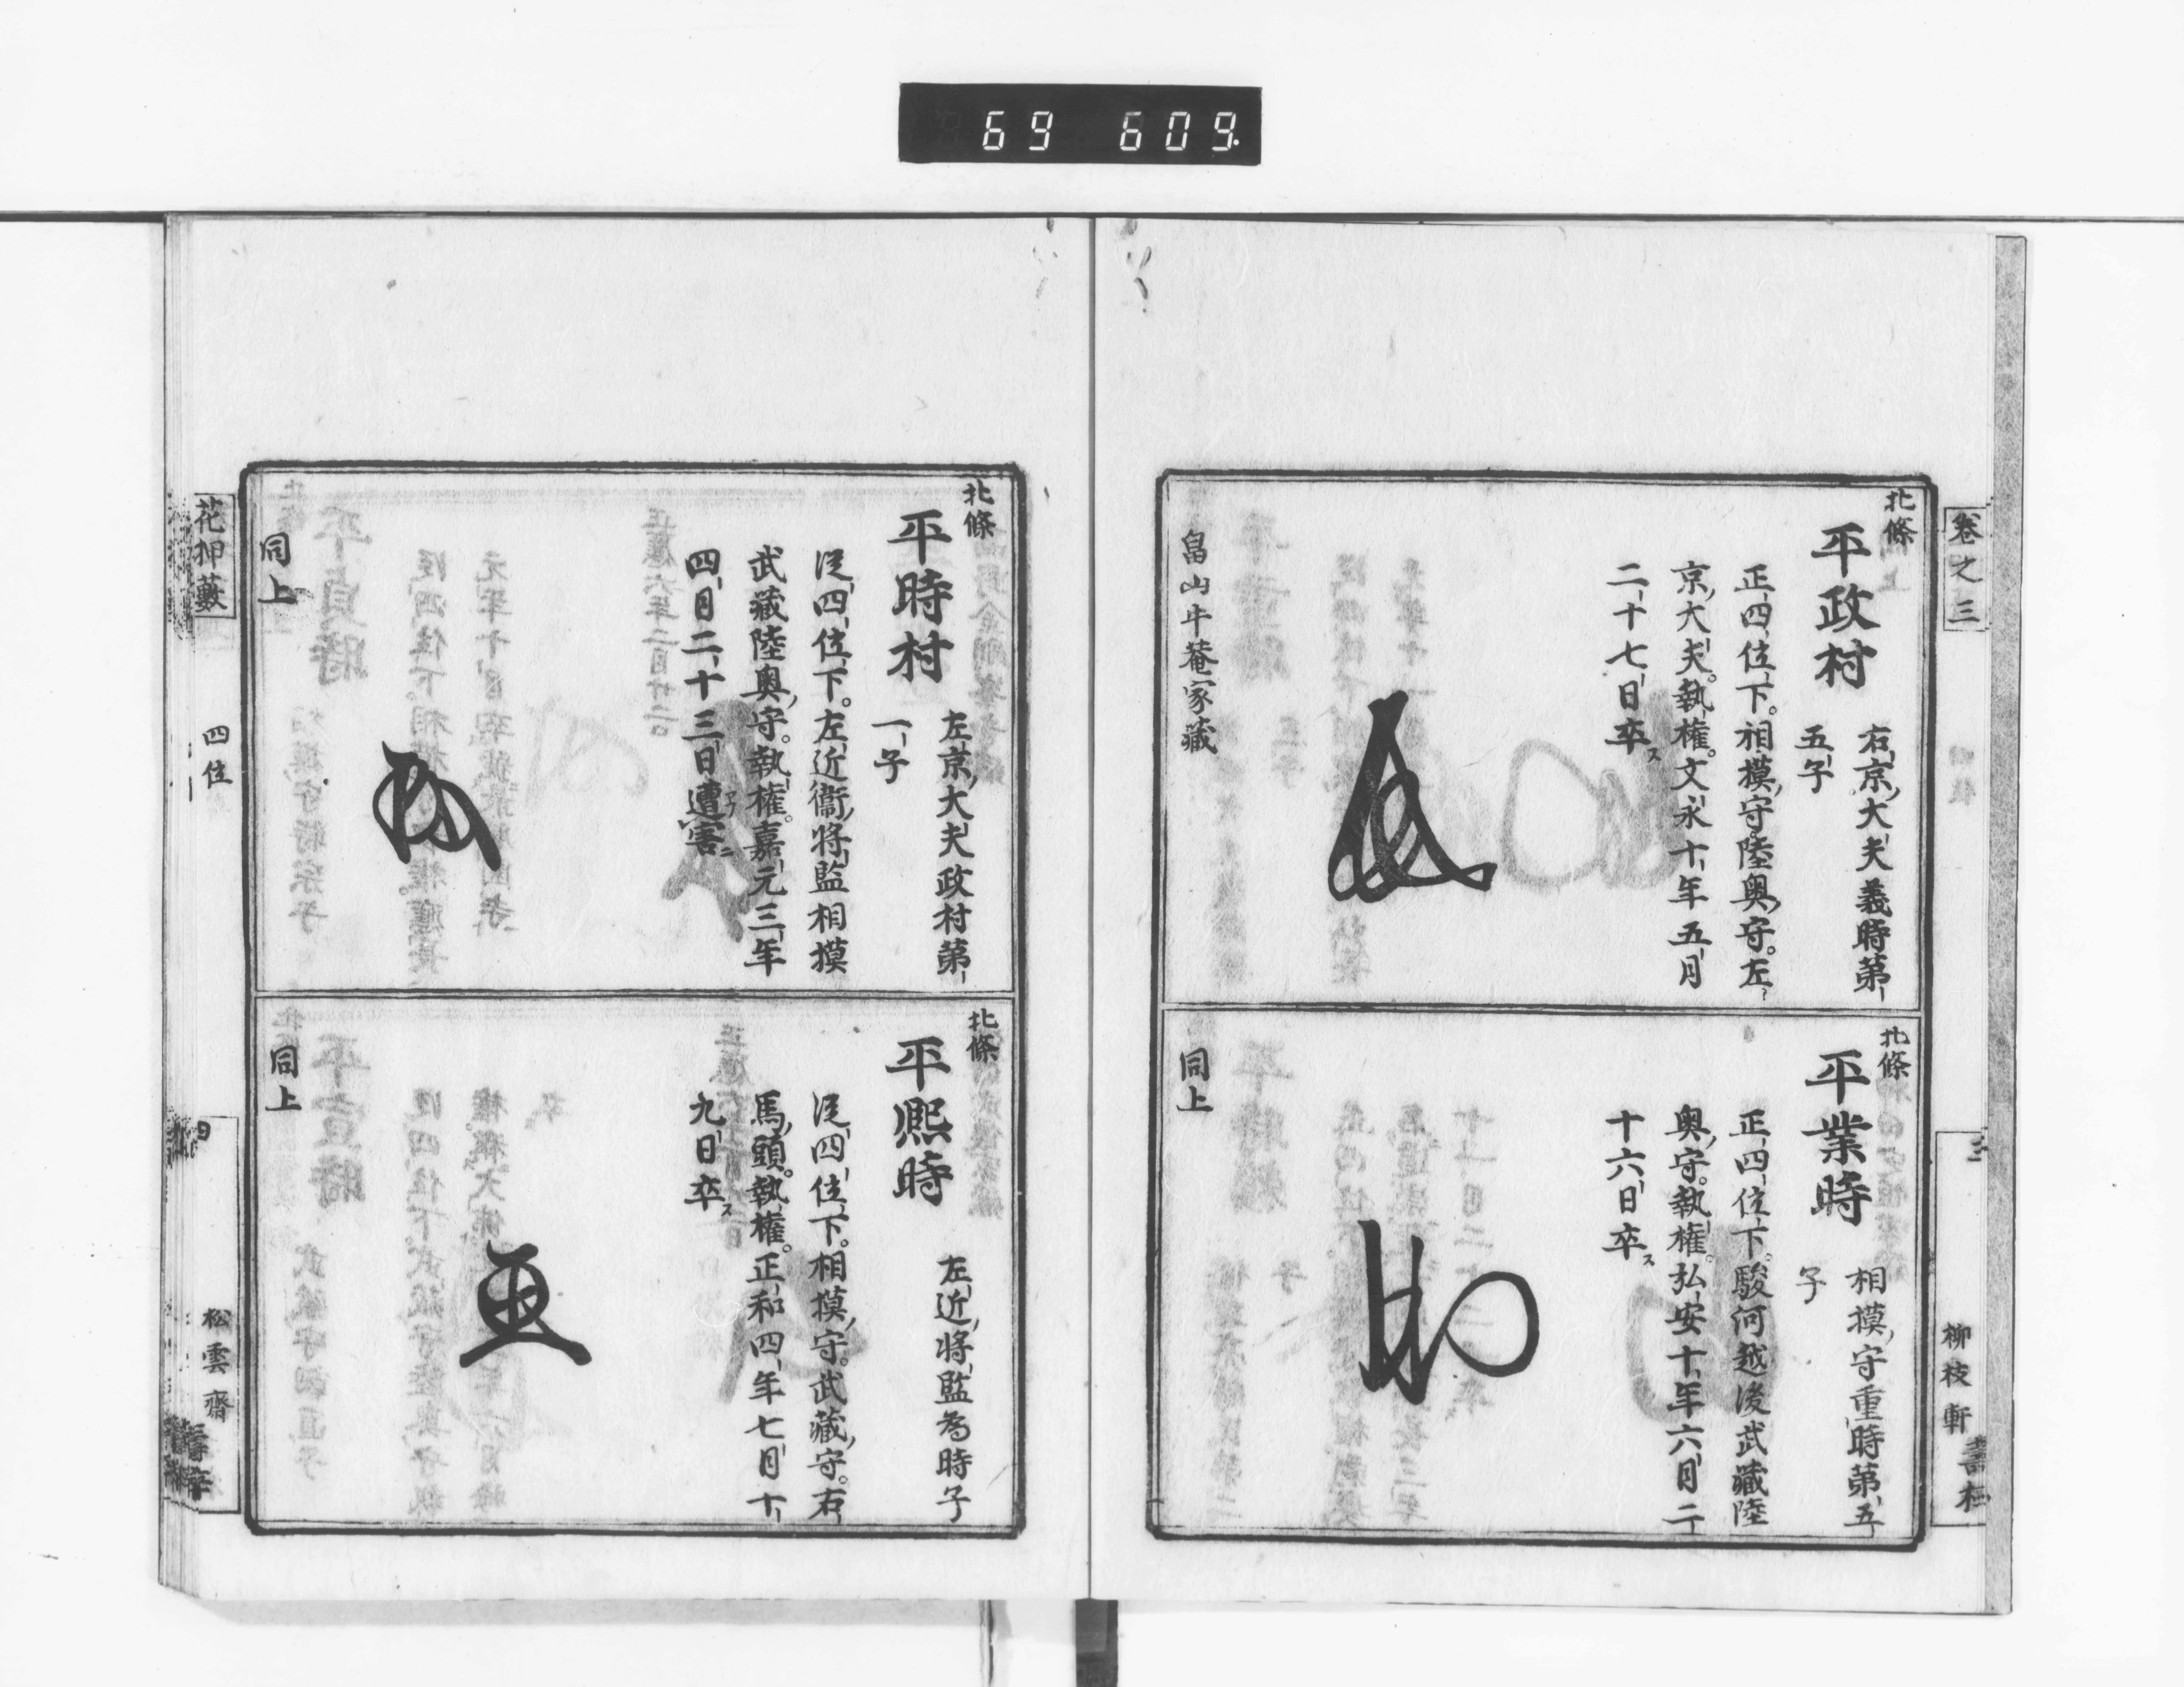 69 609.
卷之三
北條
平政村
右京大夫義時第
五子
正四位下。相摸守。陸奥守。左
京大夫。執權。文永十年五月
二十七日卒ス
畠山牛菴家藏
北條
平業時
相摸守重時第五
子
正四位下。駿河越後武藏陸
奥守。執權。弘安十年六月二
十六日卒ス
同上
三
柳枝軒
北條
平時村
左京大夫政村第
一子
從四位下。左近衞將監相摸
武藏陸奥守。執權。嘉元三年
四月二十三日遭害ニ
同上
北條
平熈時
左近將監為時子
從四位下。相摸守。武藏守。右
馬頭。執權。正和四年七月十
九日卒ス
同上
花押藪
四位
松雲齋